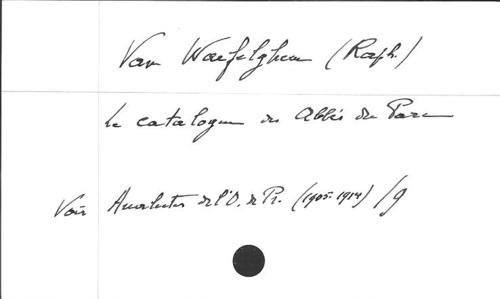 Van Waefelghem (Raph.)
le catalogue des Abbés du Parc
Voir Analectes de l'O. de Pr. (1905-1914) /9